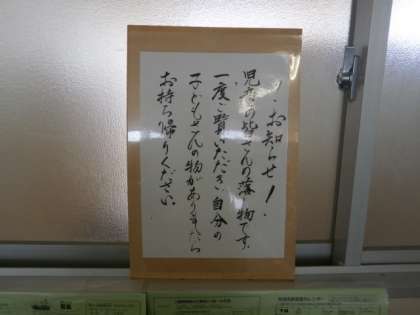 お知らせ!
児童の皆さんの落し物です。
一度ご覧いただき、自分の
子どもさんの物がありましたら
お持ち帰りください。